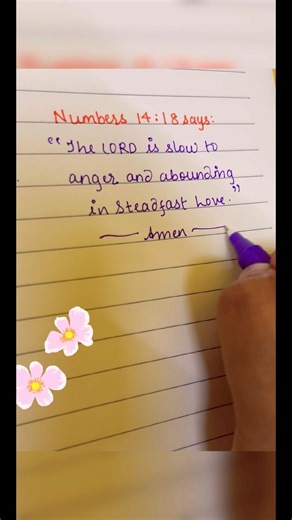 Numbers 14:18 says:
"The LORD is slow to
anger and abounding
in steadfast love."
— Amen —